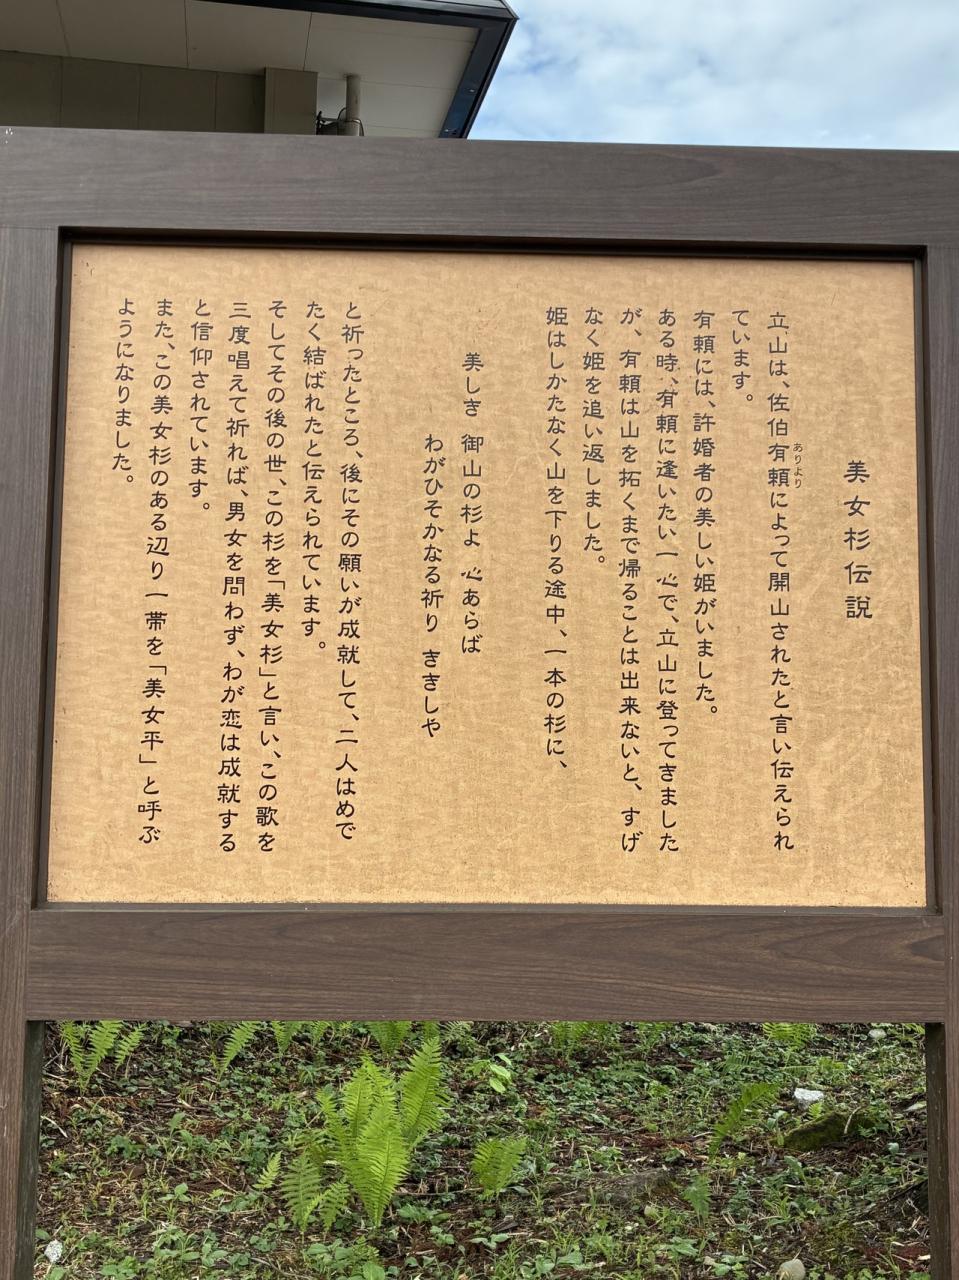 美女杉伝説
立山は、佐伯有頼によって開山されたと言い伝えられ
ありより
ています。
有頼には、許婚者の美しい姫がいました。
ある時、有頼に逢いたい一心で、立山に登ってきました
が、有頼は山を拓くまで帰ることは出来ないと、すげ
なく姫を追い返しました。
姫はしかたなく山を下りる途中、一本の杉に、
美しき 御山の杉よ 心あらば
わがひそかなる祈り ききしや
と祈ったところ、後にその願いが成就して、二人はめで
たく結ばれたと伝えられています。
そしてその後の世、この杉を「美女杉」と言い、この歌を
三度唱えて祈れば、男女を問わず、わが恋は成就する
と信仰されています。
また、この美女杉のある辺り一帯を「美女平」と呼ぶ
ようになりました。